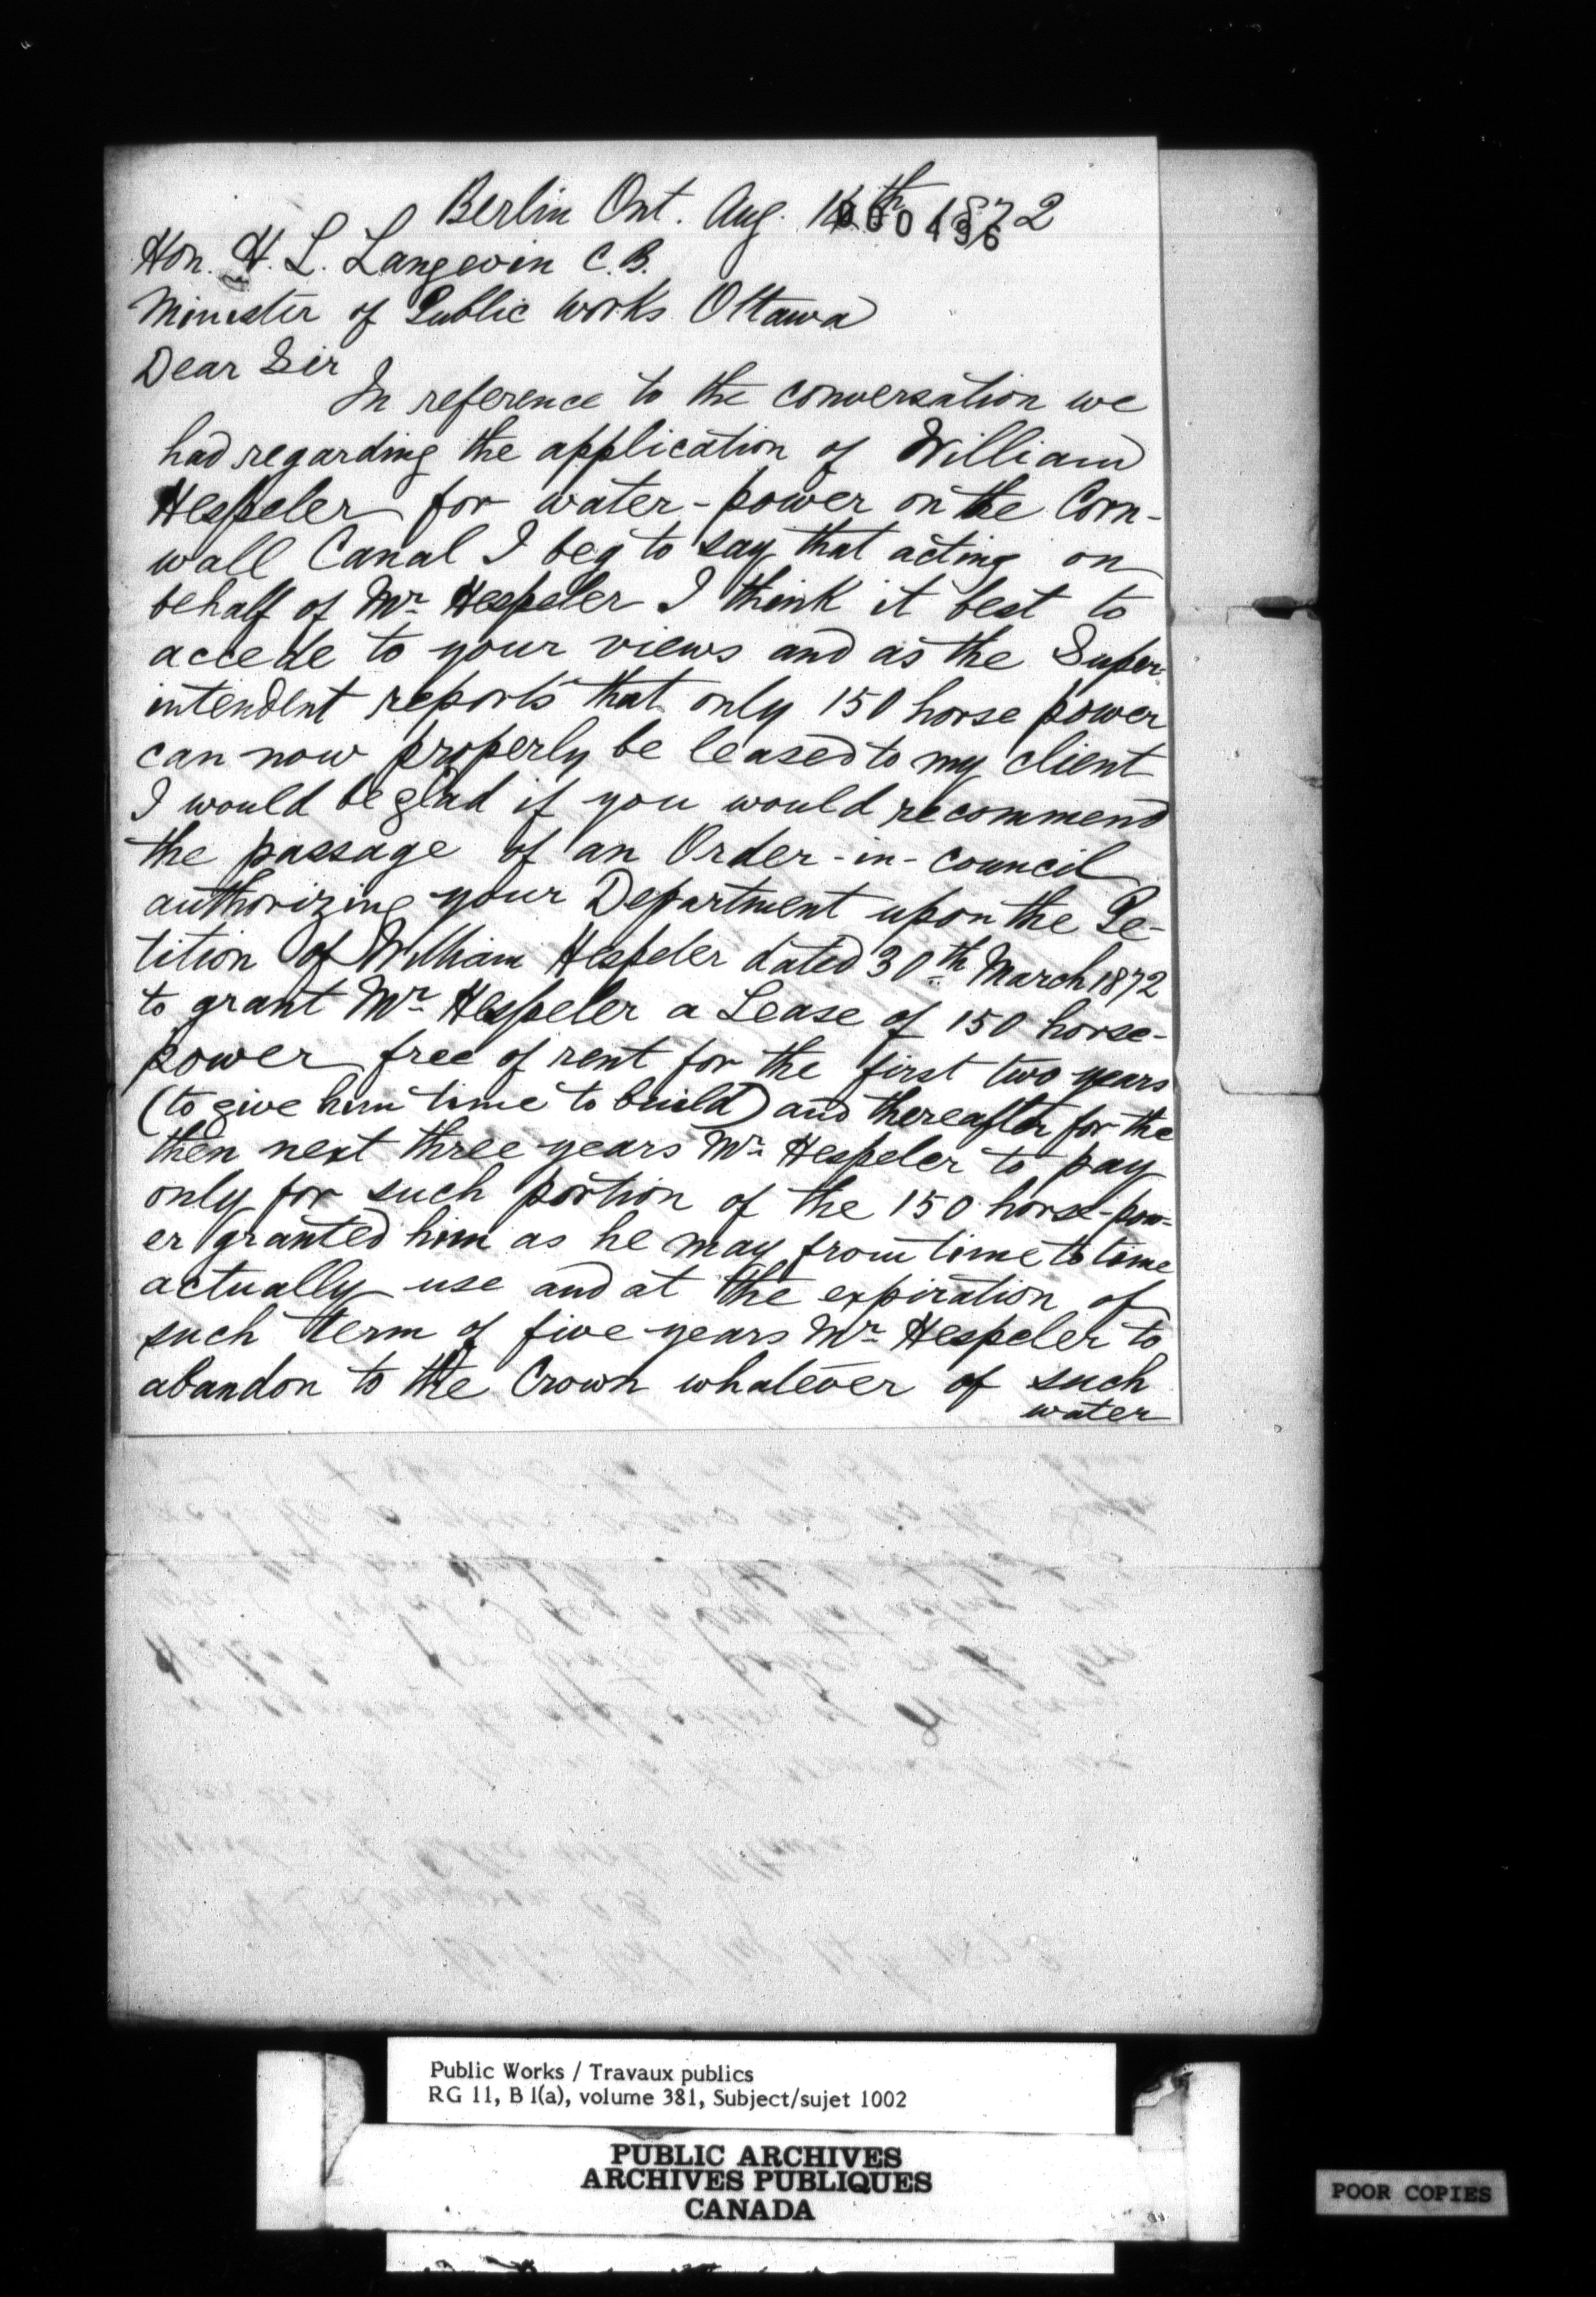 Berlin Ont. Aug. 14th 1872
000436
Hon. H. L. Langevin C.B.
Minister of Public Works Ottawa
Dear Sir
In reference to the conversation we
had regarding the application of William
Hespeler for water-power on the Corn-
wall Canal I beg to say that acting on
behalf of Mr. Hespeler I think it best to
accede to your views and as the Super-
intendent reports that only 150 horse power
can now properly be leased to my client
I would be glad if you would recommend
the passage of an Order-in-council
authorizing your Department upon the Pe-
tition of William Hespeler dated 30th March 1872
to grant Mr. Hespeler a Lease of 150 horse-
power free of rent for the first two years
(to give him time to build) and thereafter for the
then next three years Mr. Hespeler to pay
only for such portion of the 150 horse-pow-
er granted him as he may from time to time
actually use and at the expiration of
such term of five years Mr. Hespeler to
abandon to the Crown whatever of such
water
Public Works / Travaux publics
RG 11, B 1(a), volume 381, Subject/sujet 1002
PUBLIC ARCHIVES
ARCHIVES PUBLIQUES
CANADA
POOR COPIES